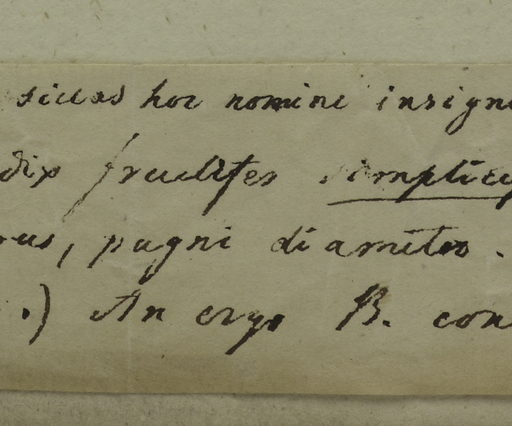 siccas hoc nomine insign
dix fructifer simplici
rus, pugni diametro.
.) An ergo B. con